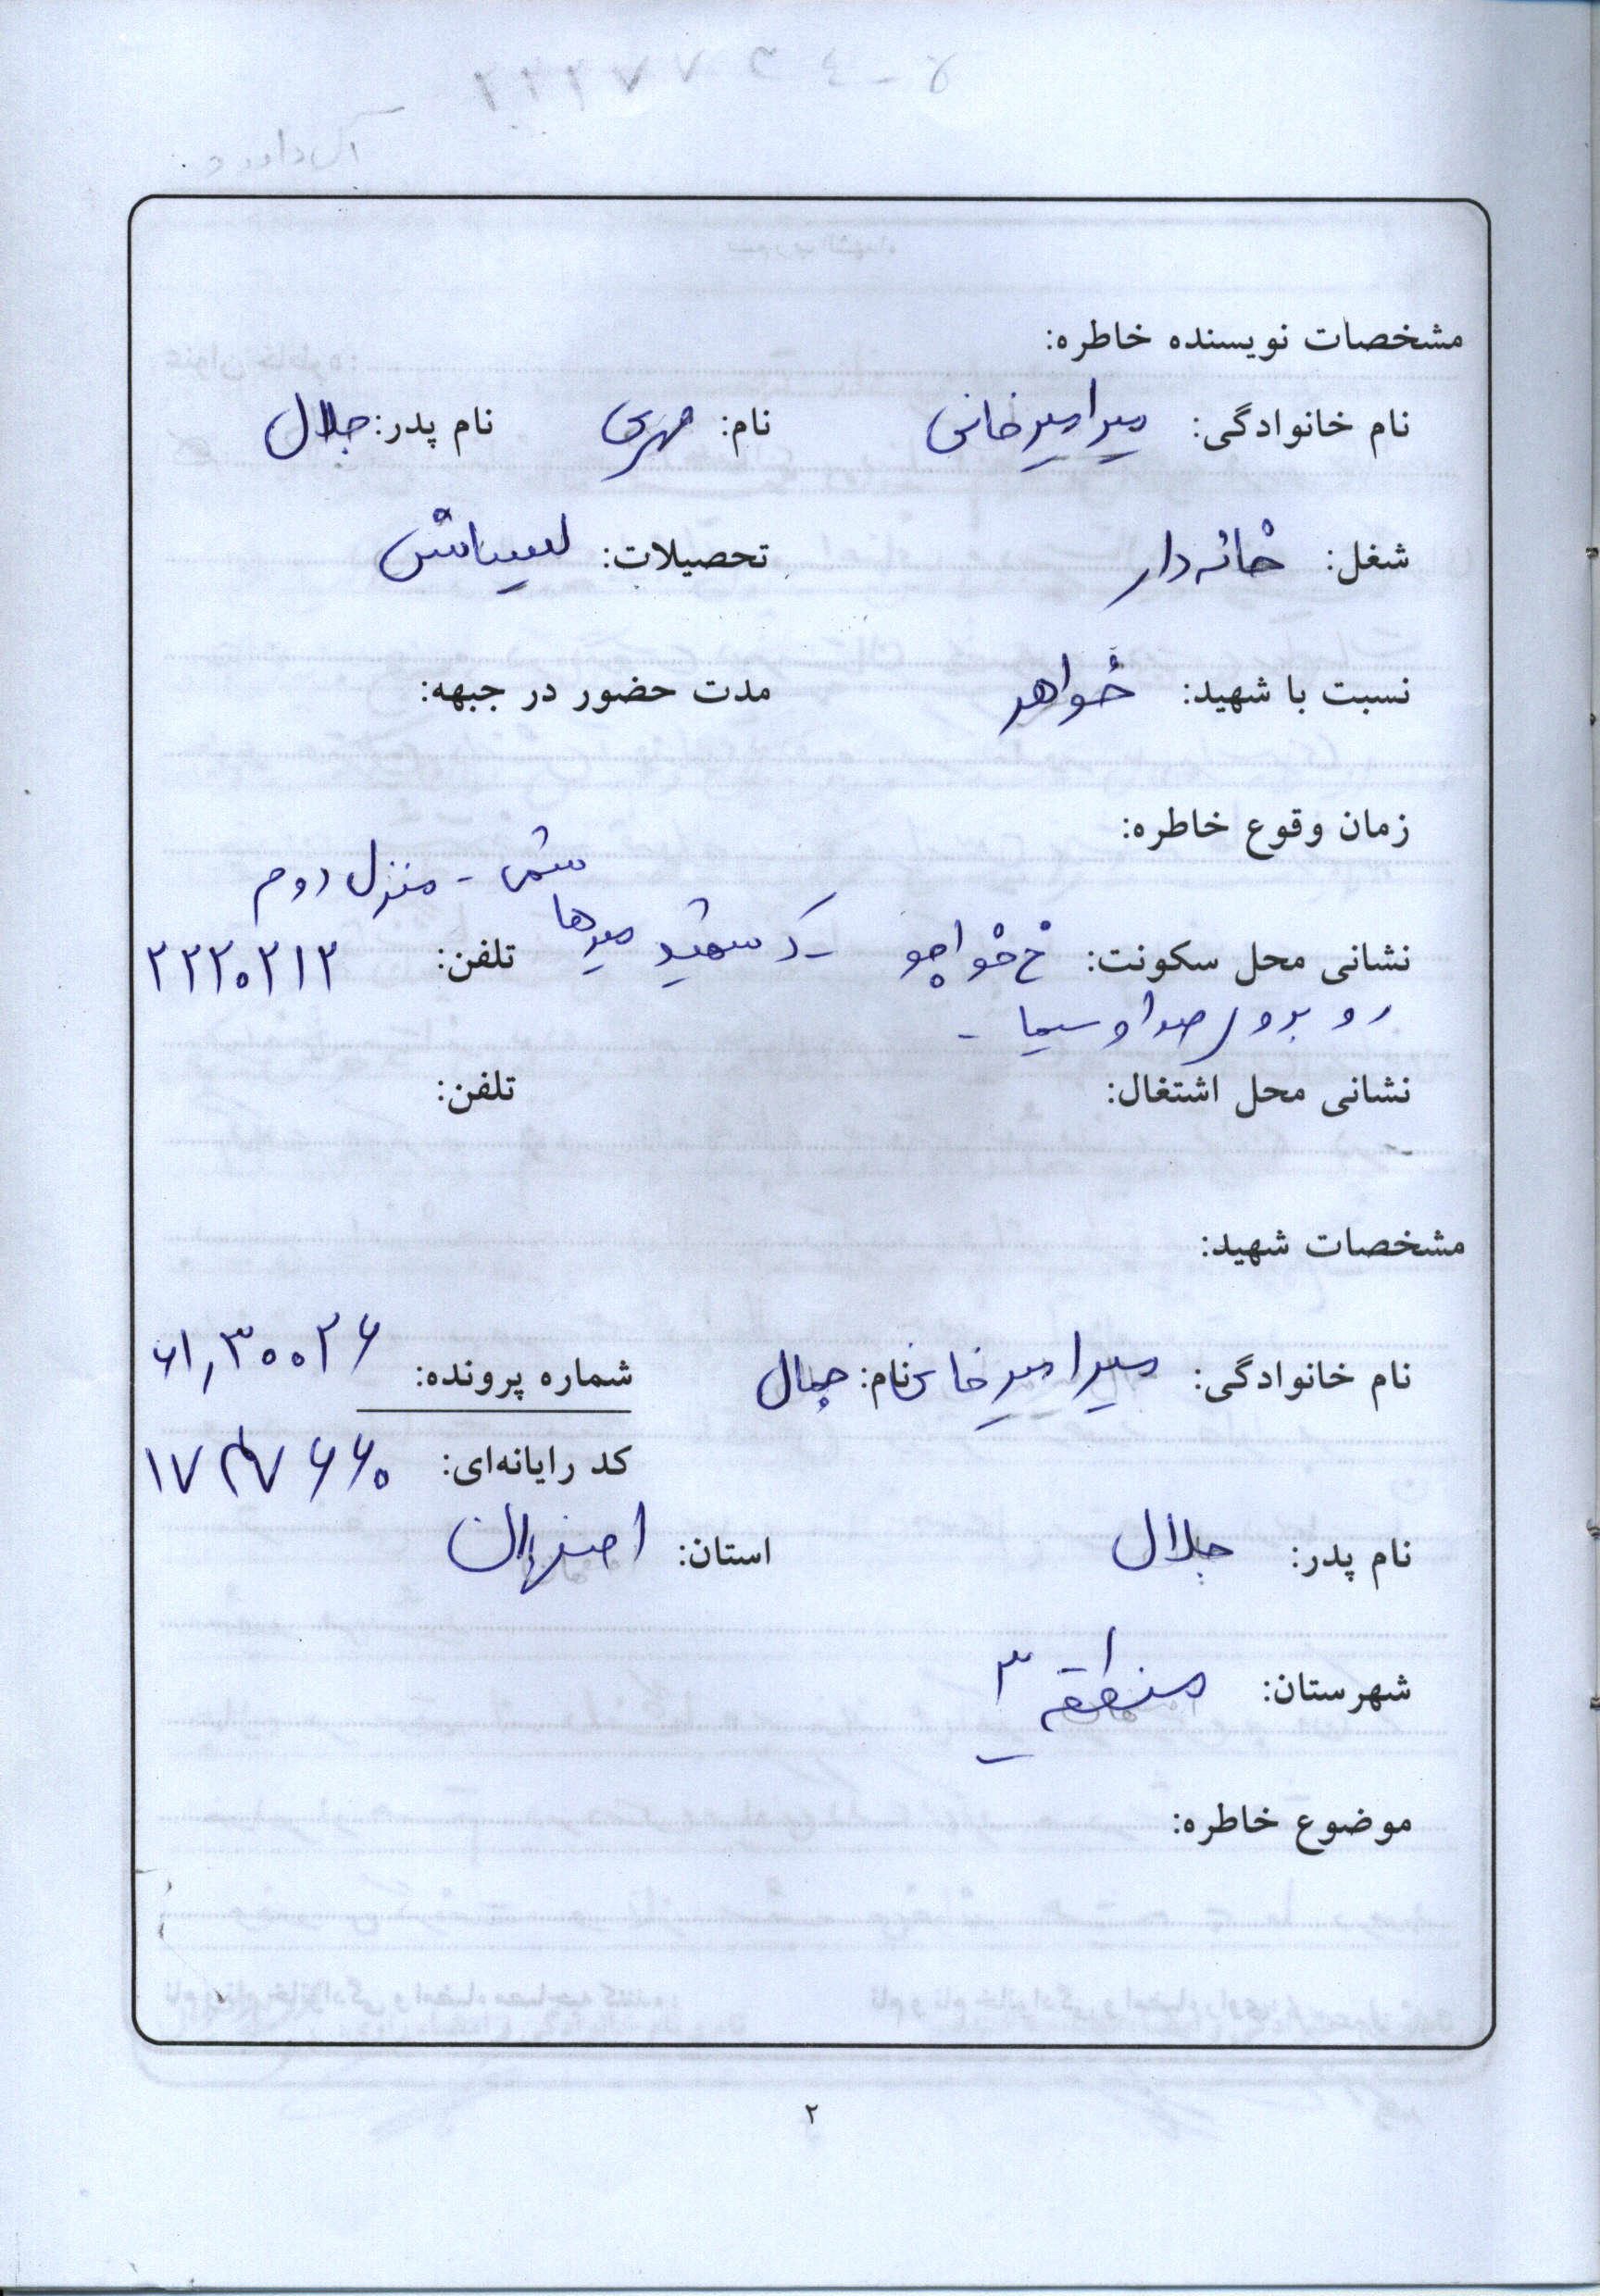 مشخصات نویسنده خاطره:
نام خانوادگی: میرامیرخانی نام: مهری نام پدر: جلال
شغل: خانه دار تحصیلات: لیسانس
نسبت با شهید: خواهر مدت حضور در جبهه:
زمان وقوع خاطره:
نشانی محل سکونت: خ خواجو - ک شهید میرهاشمی - منزل دوم تلفن: ۲۲۲۰۲۱۲
روبروی صدا و سیما -
نشانی محل اشتغال: تلفن:
مشخصات شهید:
نام خانوادگی: میرامیرخانی نام: جمال شماره پرونده: ۶۱٫۳۰۰۲۶
کد رایانه‌ای: ۱۷۴۷۶۶۰
نام پدر: جلال استان: اصفهان
شهرستان: منطقه ۳
موضوع خاطره:
۲